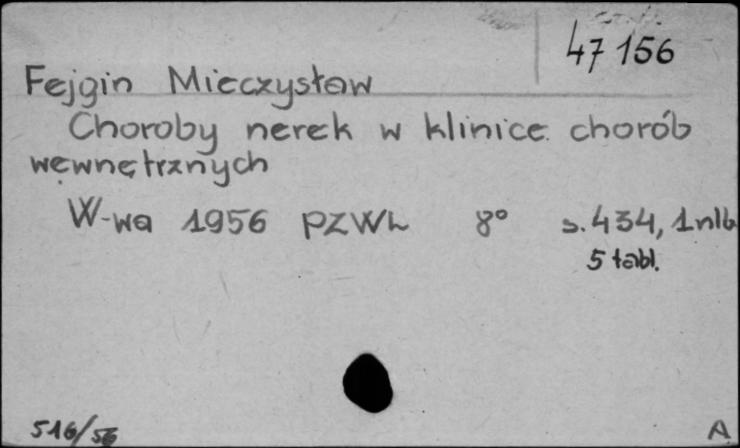 47 156
Fejgin Mieczysław
Choroby nerek w klinice chorób
węwnętrznych
W-wa 1956 PZWL 8° s. 434, 1 nlb
5 tabl.
516/56 A